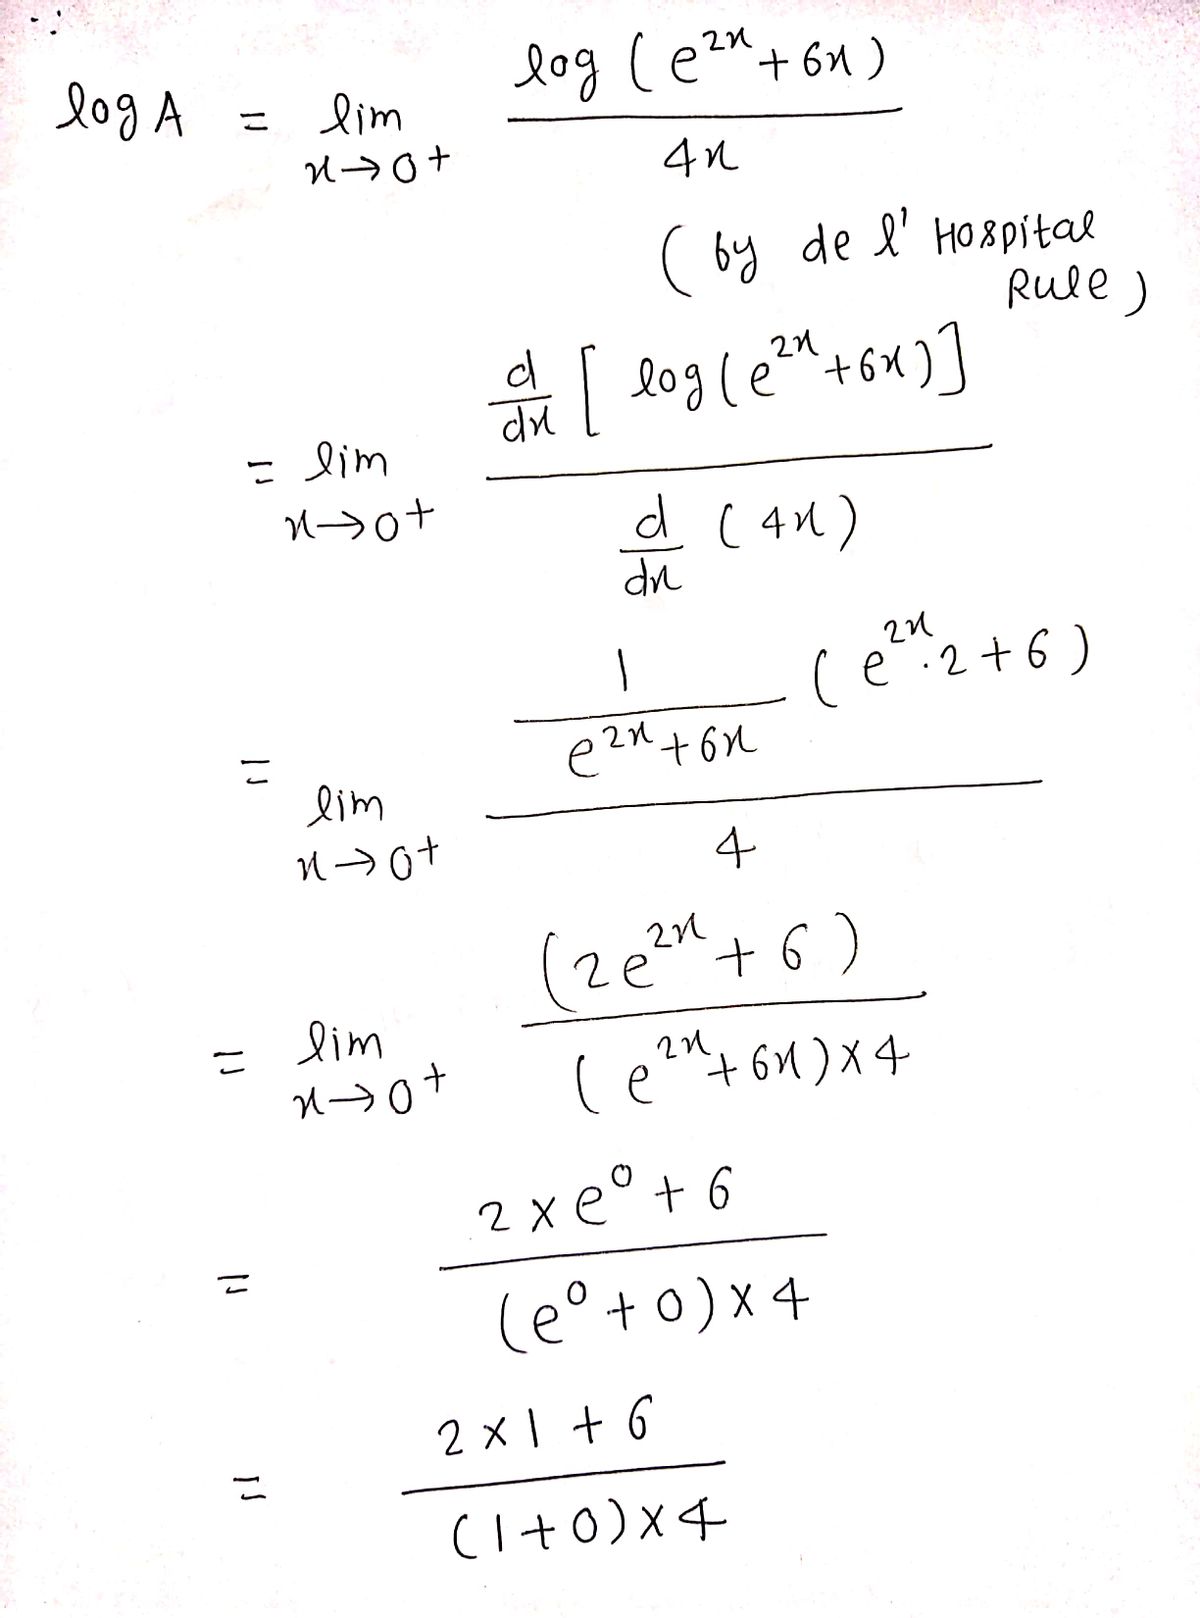 ∵
log A = lim x→0+ log (e^{2x} + 6x) / 4x
( by de l' Hospital
Rule )
= lim x→0+ d/dx [ log (e^{2x} + 6x) ] / d/dx ( 4x )
= lim x→0+ 1/(e^{2x} + 6x) ( e^{2x} . 2 + 6 ) / 4
= lim x→0+ (2e^{2x} + 6 ) / ( e^{2x} + 6x ) × 4
= 2 × e^0 + 6 / (e^0 + 0) × 4
= 2 × 1 + 6 / (1 + 0) × 4